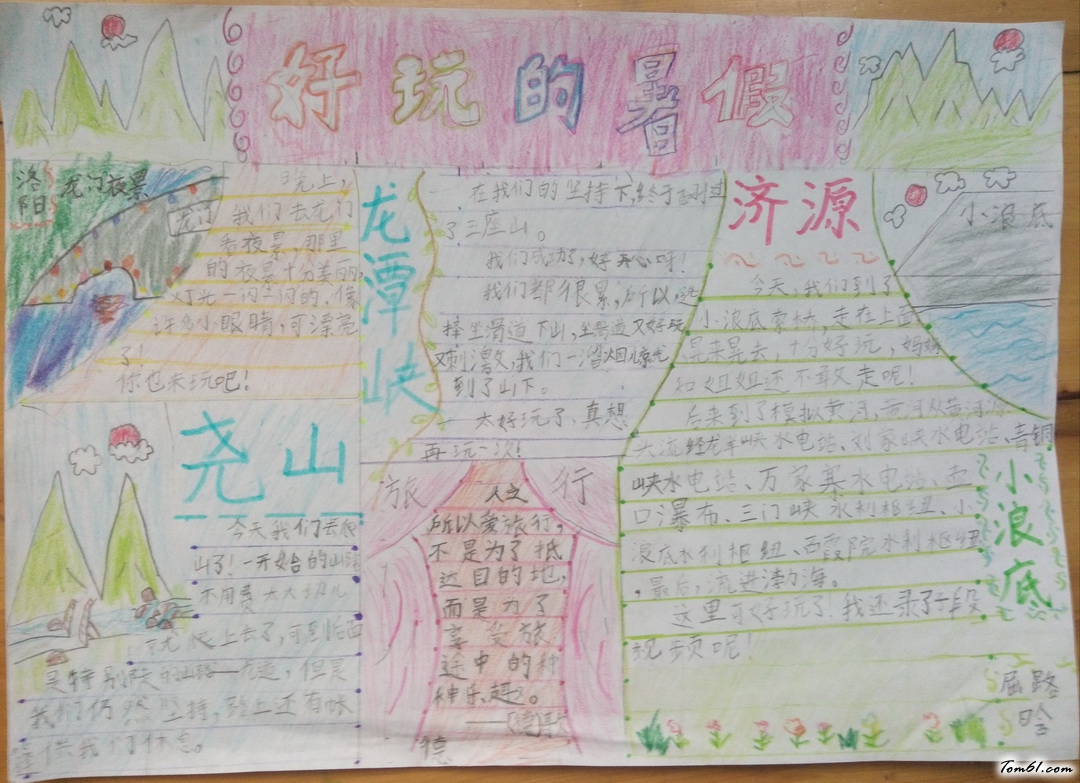 好玩的暑假
洛阳
龙门夜景
龙门
晚上，
我们去龙门
看夜景，那里
的夜景十分美丽，
灯光一闪一闪的，像
许多小眼睛，可漂亮
了！
你也来玩吧！
龙潭峡
在我们的坚持下，终于
了三座山。
我们成功了，好开心呀！
我们都很累，所以，选
择坐滑道下山，坐滑道又好玩
又刺激，我们一溜烟
到了山下。
太好玩了，真想
再玩一次！
济源
小浪底
今天，我们到了
小浪底索桥，走在上面
晃来晃去，十分好玩，妈妈
和姐姐还不敢走呢！
后来到了模拟黄河，黄河从黄河源
头流经龙羊峡水电站、刘家峡水电站、青铜
峡水电站、万家寨水电站、壶
口瀑布、三门峡水利枢纽、小
浪底水利枢纽、西霞院水利枢纽
，最后，流进渤海。
这里可好玩了！我还录了一段
视频呢！
小浪底
屈路
晗
尧山
今天我们去爬
山了！一开始的山路
不用费太大
就爬上去了，可到后面
是特别陡的山路
我们仍然坚持，路上还有帐
篷供我们休息。
旅行
人之
所以爱旅行，
不是为了抵
达目的地，
而是为了
享受旅
途中的种
种乐趣。
——[德]歌
德
Tom61.com